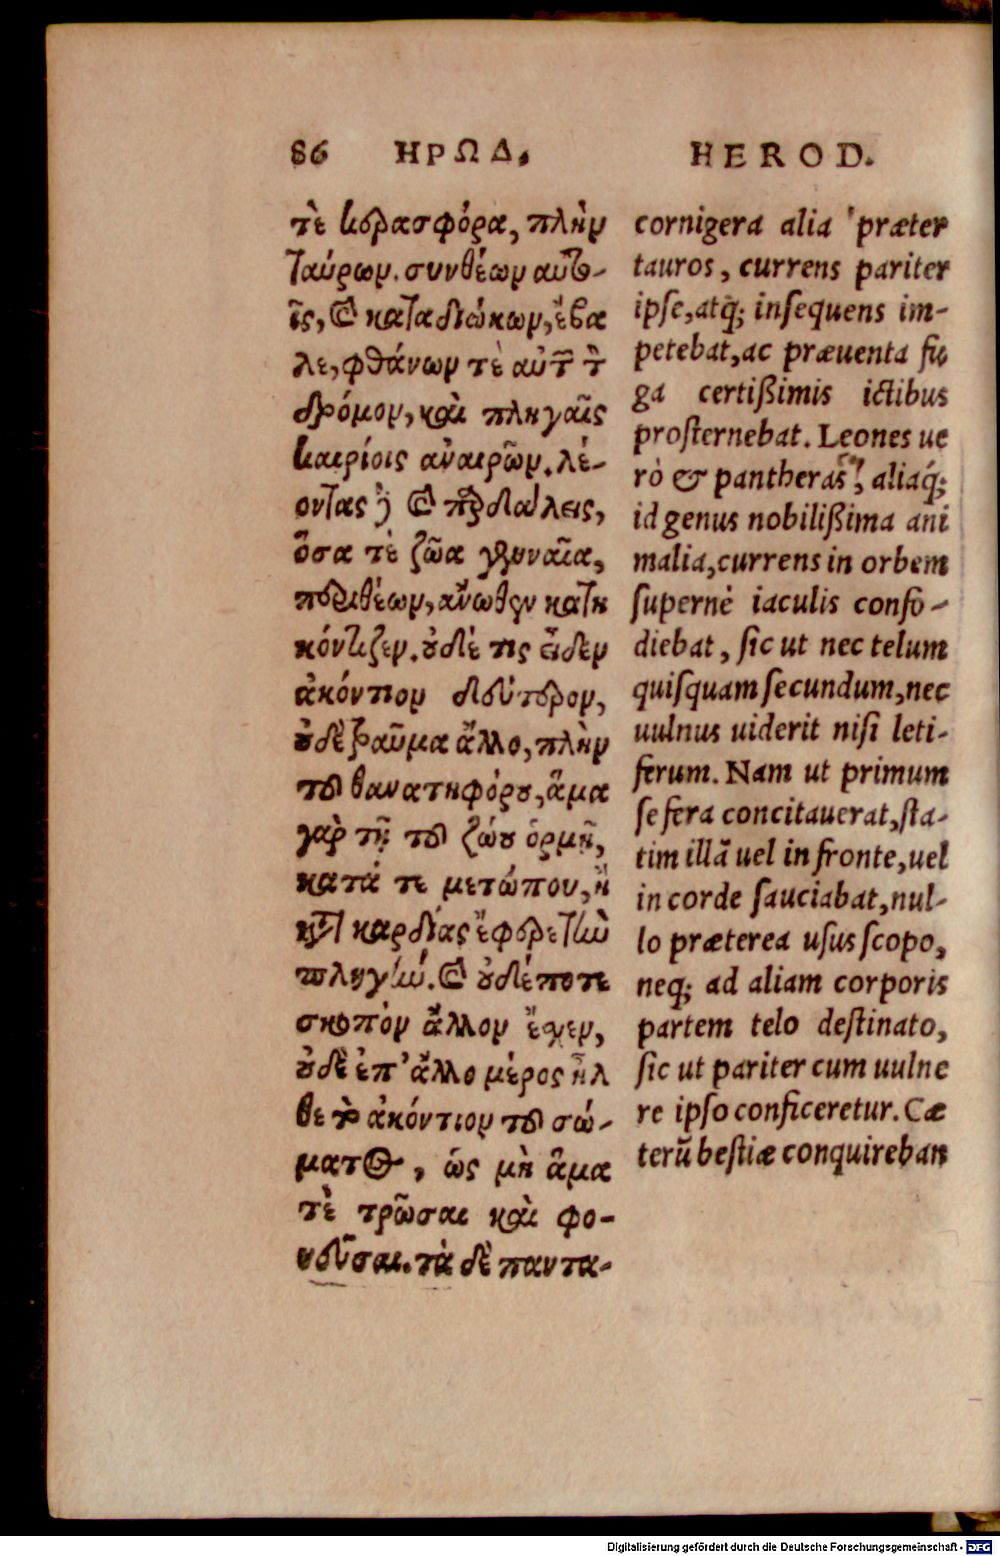 86 ΗΡΩΔ.
τὲ κερασφόρα, πλὴν
ταύρων. συνθέων αὐτο-
ῖς, καὶ καταδιώκων, ἔβα
λε, φθάνων τὲ αὐτῶν τὸν
δρόμον, καὶ πληγαῖς
καιρίοις ἀναιρῶν. λέ-
οντας δὲ καὶ παρδάλεις,
ὅσα τὲ ζῶα γενναῖα,
περιθέων, ἄνωθεν κατη
κόντιζεν. οὐδέ τις εἶδεν
ἀκόντιον δεύτερον,
οὐδὲ τραῦμα ἄλλο, πλὴν
τοῦ θανατηφόρου, ἅμα
γὰρ τῇ τοῦ ζώου ὁρμῇ,
κατά τε μετώπου, ἢ
κατὰ καρδίας ἔφερε τὴν
πληγήν. καὶ οὐδέποτε
σκοπὸν ἄλλον ἔχεν,
οὐδὲ ἐπ' ἄλλο μέρος ἦλ
θε τὸ ἀκόντιον τοῦ σώ-
ματος, ὡς μὴ ἅμα
τὲ τρῶσαι καὶ φο-
νεῦσαι. τὰ δὲ παντα-
HEROD.
cornigera alia præter
tauros, currens pariter
ipse, atq; insequens im-
petebat, ac præuenta fu
ga certißimis ictibus
prosternebat. Leones ue
rò & pantheras, aliaq́;
id genus nobilißima ani
malia, currens in orbem
supernè iaculis confo-
diebat, sic ut nec telum
quisquam secundum, nec
uulnus uiderit nisi leti-
ferum. Nam ut primum
se fera concitauerat, sta-
tim illã uel in fronte, uel
in corde sauciabat, nul-
lo præterea usus scopo,
neq; ad aliam corporis
partem telo destinato,
sic ut pariter cum uulne
re ipso conficeretur. Cæ
terũ bestiæ conquireban
Digitalisierung gefördert durch die Deutsche Forschungsgemeinschaft - DFG